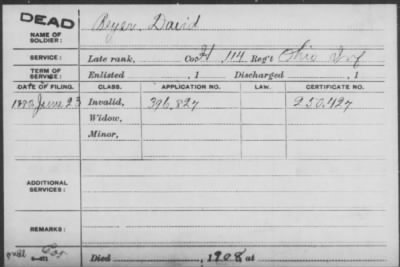 DEAD
NAME OF SOLDIER: Beyer, David
SERVICE: Late rank, Co. H, 114 Reg't Ohio Inf
TERM OF SERVICE: Enlisted , 1 Discharged , 1
DATE OF FILING. CLASS. APPLICATION NO. LAW. CERTIFICATE NO.
1880 June 23 Invalid, 396,827 230.427
Widow,
Minor,
ADDITIONAL SERVICES:
REMARKS:
Died , 1908 at